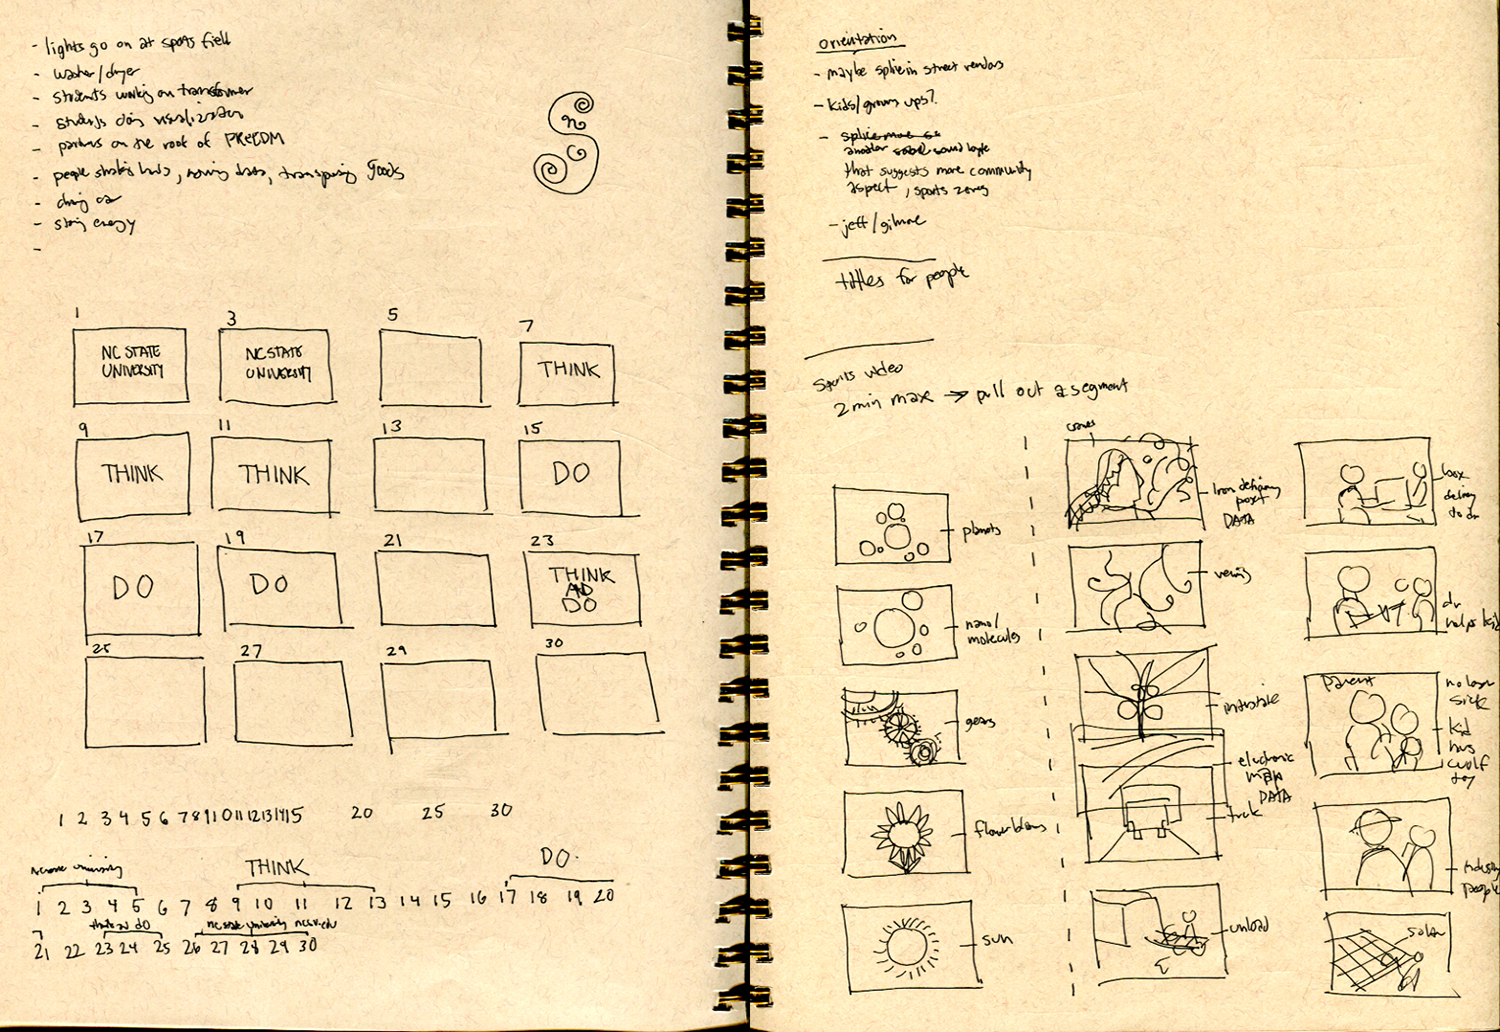 - lights go on at sports field
- washer/dryer
- students working on transformer
- students doing visualization
- partners on the root of FREEDM
- people shaking hands, moving data, transporting goods
- driving car
- storing energy
-
1 3 5 7
NC STATE UNIVERSITY
NC STATE UNIVERSITY
THINK
9 11 13 15
THINK
THINK
DO
17 19 21 23
DO
DO
THINK
AND
DO
25 27 29 30
1 2 3 4 5 6 7 8 9 10 11 12 13 14 15 20 25 30
NC State University
THINK
DO.
1 2 3 4 5 6 7 8 9 10 11 12 13 14 15 16 17 18 19 20
think and do
NC State University ncsu.edu
21 22 23 24 25 26 27 28 29 30
orientation
- maybe splice in street vendors
- kids/grown ups?
- splice more as
another sound byte
that suggests more community
aspect, sports zones
- jeff/gilmore
titles for people
Sports video
2 min max → pull out a segment
planets
nano/
molecules
gears
flower blooms
sun
DATA
veins
interstate
electronic
DATA
truck
unload
box
delivery
to dr
dr
helps kid
parent
no longer
sick
kid
has
wolf
toy
industry
people
solar